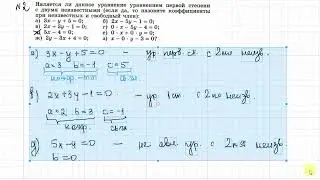 №2 Является ли данное уравнение уравнением первой степени
с двумя неизвестными (если да, то назовите коэффициенты
при неизвестных и свободный член):
а) 3x − y + 5 = 0;
б) 2x − 5y − 1 = 0;
в) 2x + 3y − 1 = 0;
г) 0 · x − 5y + 0 = 0;
5x − 4 = 0;
ж) 5y − 3x + 4 = 0;
з) x − 0 · y − 3 = 0?
а) 3x − y + 5 = 0 — ур. перв. ст. с 2мя неизв.
a = 3 b = −1 c = 5
в) 2x + 3y − 1 = 0 — ур. 1 ст. с 2мя неизв
a = 2 b = 3
коэф. св.чл.
д) 5x − 4 = 0 — не явл. ур. с 2мя неизв
b = 0